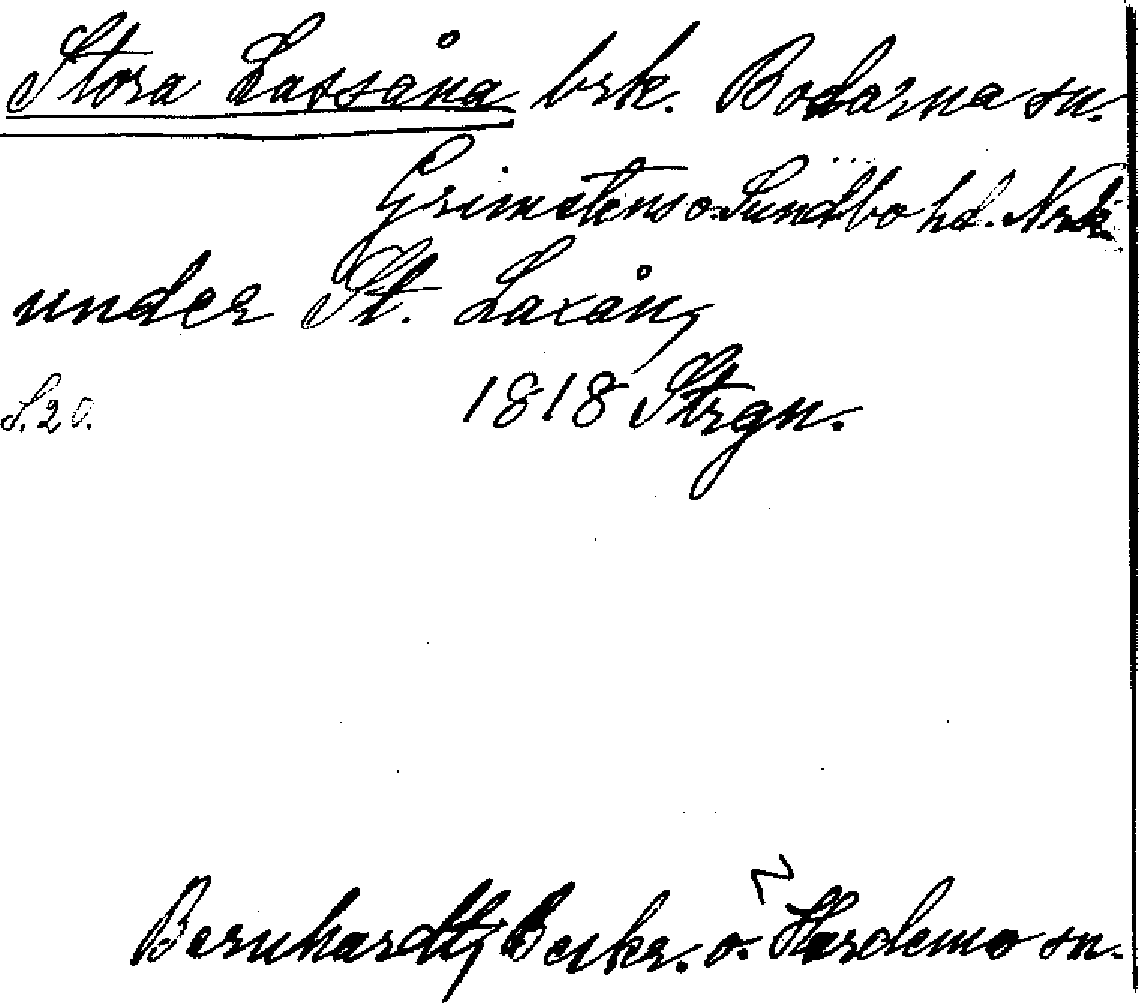 Stora Lassåna brk. Bodarna sn.
Grimstens o. Sundbo hd. Nrk.
under St. Laxån,
S. 20. 1818 Strgn.
Bernhardt, Beskr. ö. Hardemo sn.